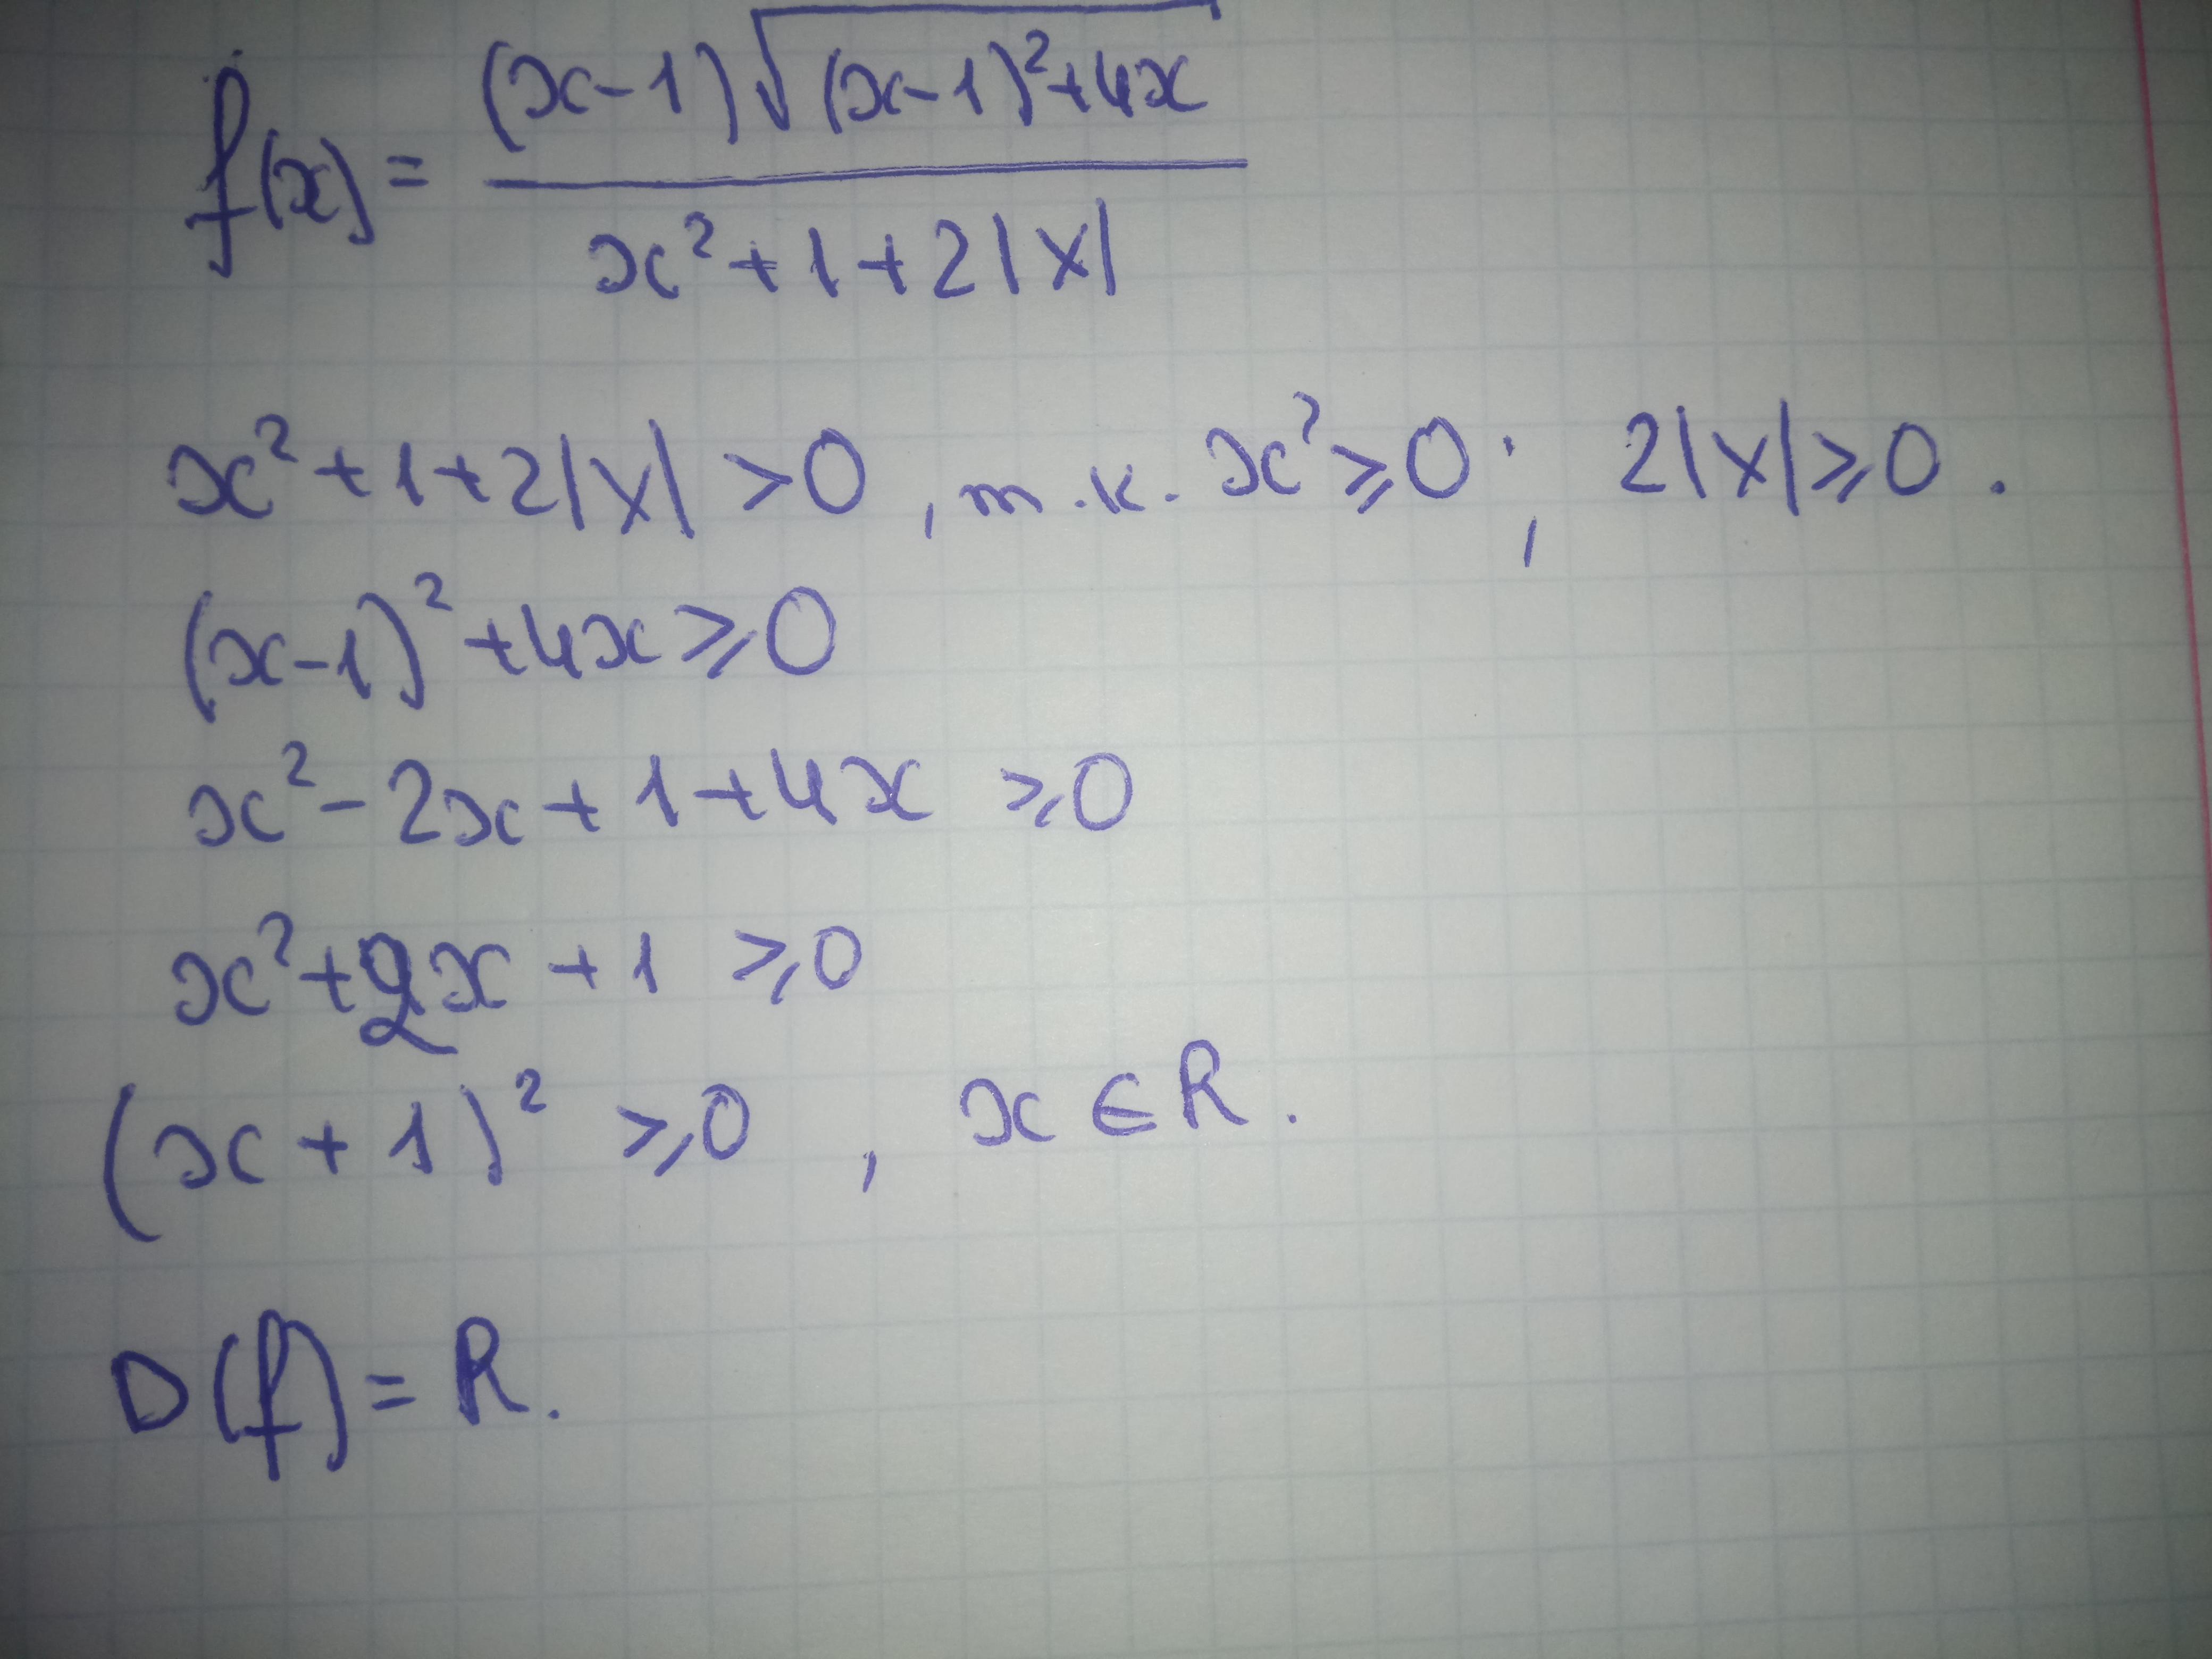 f(x) = (x-1)√((x-1)²+4x) / (x²+1+2|x|)
x²+1+2|x| >0, т.к. x²⩾0; 2|x|⩾0.
(x-1)²+4x⩾0
x²-2x+1+4x ⩾0
x²+2x+1 ⩾0
(x+1)² ⩾0, x∈R.
D(f)=R.